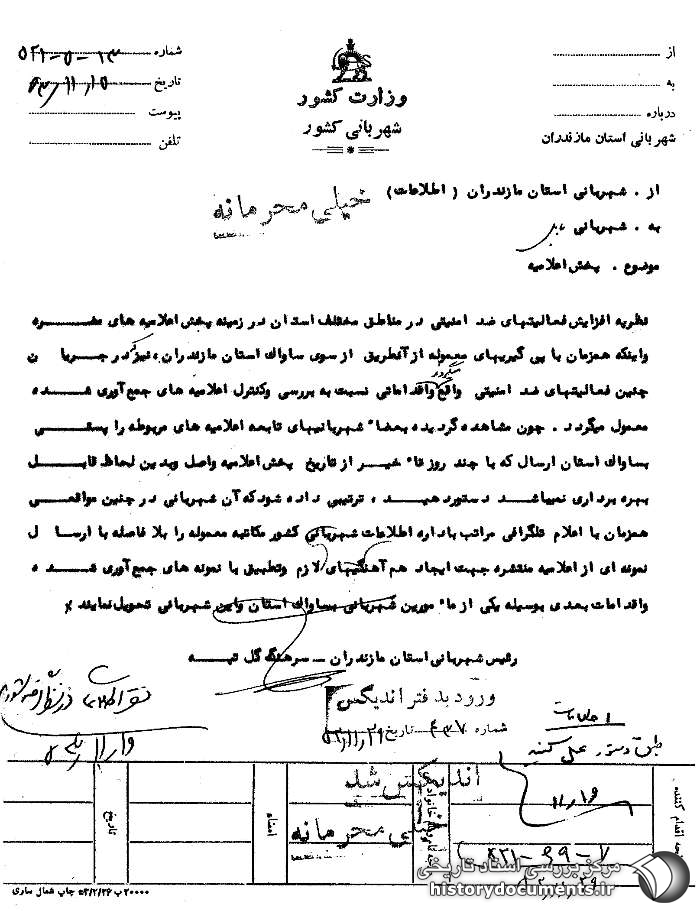 شماره
تاریخ
پیوست
تلفن
وزارت کشور
شهربانی کشور
از
به
درباره
شهربانی استان مازندران
از . شهربانی استان مازندران ( اطلاعات )
خیلی محرمانه
به . شهربانی
موضوع . پخش اعلامیه
نظربه افزایش فعالیتهای ضد امنیتی در مناطق مختلف استان در زمینه پخش اعلامیه های مضره
واینکه همزمان با پی گیریهای معموله از آنطریق از سوی ساواک استان مازندران نیز در جریان
چنین فعالیتهای ضد امنیتی واقع میگردد واقداماتی نسبت به بررسی وکنترل اعلامیه های جمع آوری شده
معمول میگردد . چون مشاهده گردیده بعضاً شهربانیهای تابعه اعلامیه های مربوطه را پستی
بساواک استان ارسال که با چند روز تأخیر از تاریخ پخش اعلامیه واصل وبدین لحاظ قابل
بهره برداری نمیباشد دستور دهید ، ترتیبی داده شود که آن شهربانی در چنین مواقعی
همزمان با اعلام تلگرافی مراتب باداره اطلاعات شهربانی کشور مکاتبه معموله را بلا فاصله با ارسال
نمونه ای از اعلامیه منتشره جهت ایجاد هم آهنگیهای لازم وتطبیق با نمونه های جمع آوری شده
واقدامات بعدی بوسیله یکی از مأمورین شهربانی بساواک استان واین شهربانی تحویل نمایند
رئیس شهربانی استان مازندران ـ سرهنگ گل تپه
ورود بدفتر اندیکس
شماره ۴۳۷ تاریخ
اطلاعات
طبق دستور عمل کنند
اندیکس شد
خیلی محرمانه
اقدام کننده
امضاء
تاریخ
۲۰۰۰۰ ب ۵۳/۲/۲۶ چاپ شمال ساری
مرکز بررسی اسناد تاریخی
historydocuments.ir